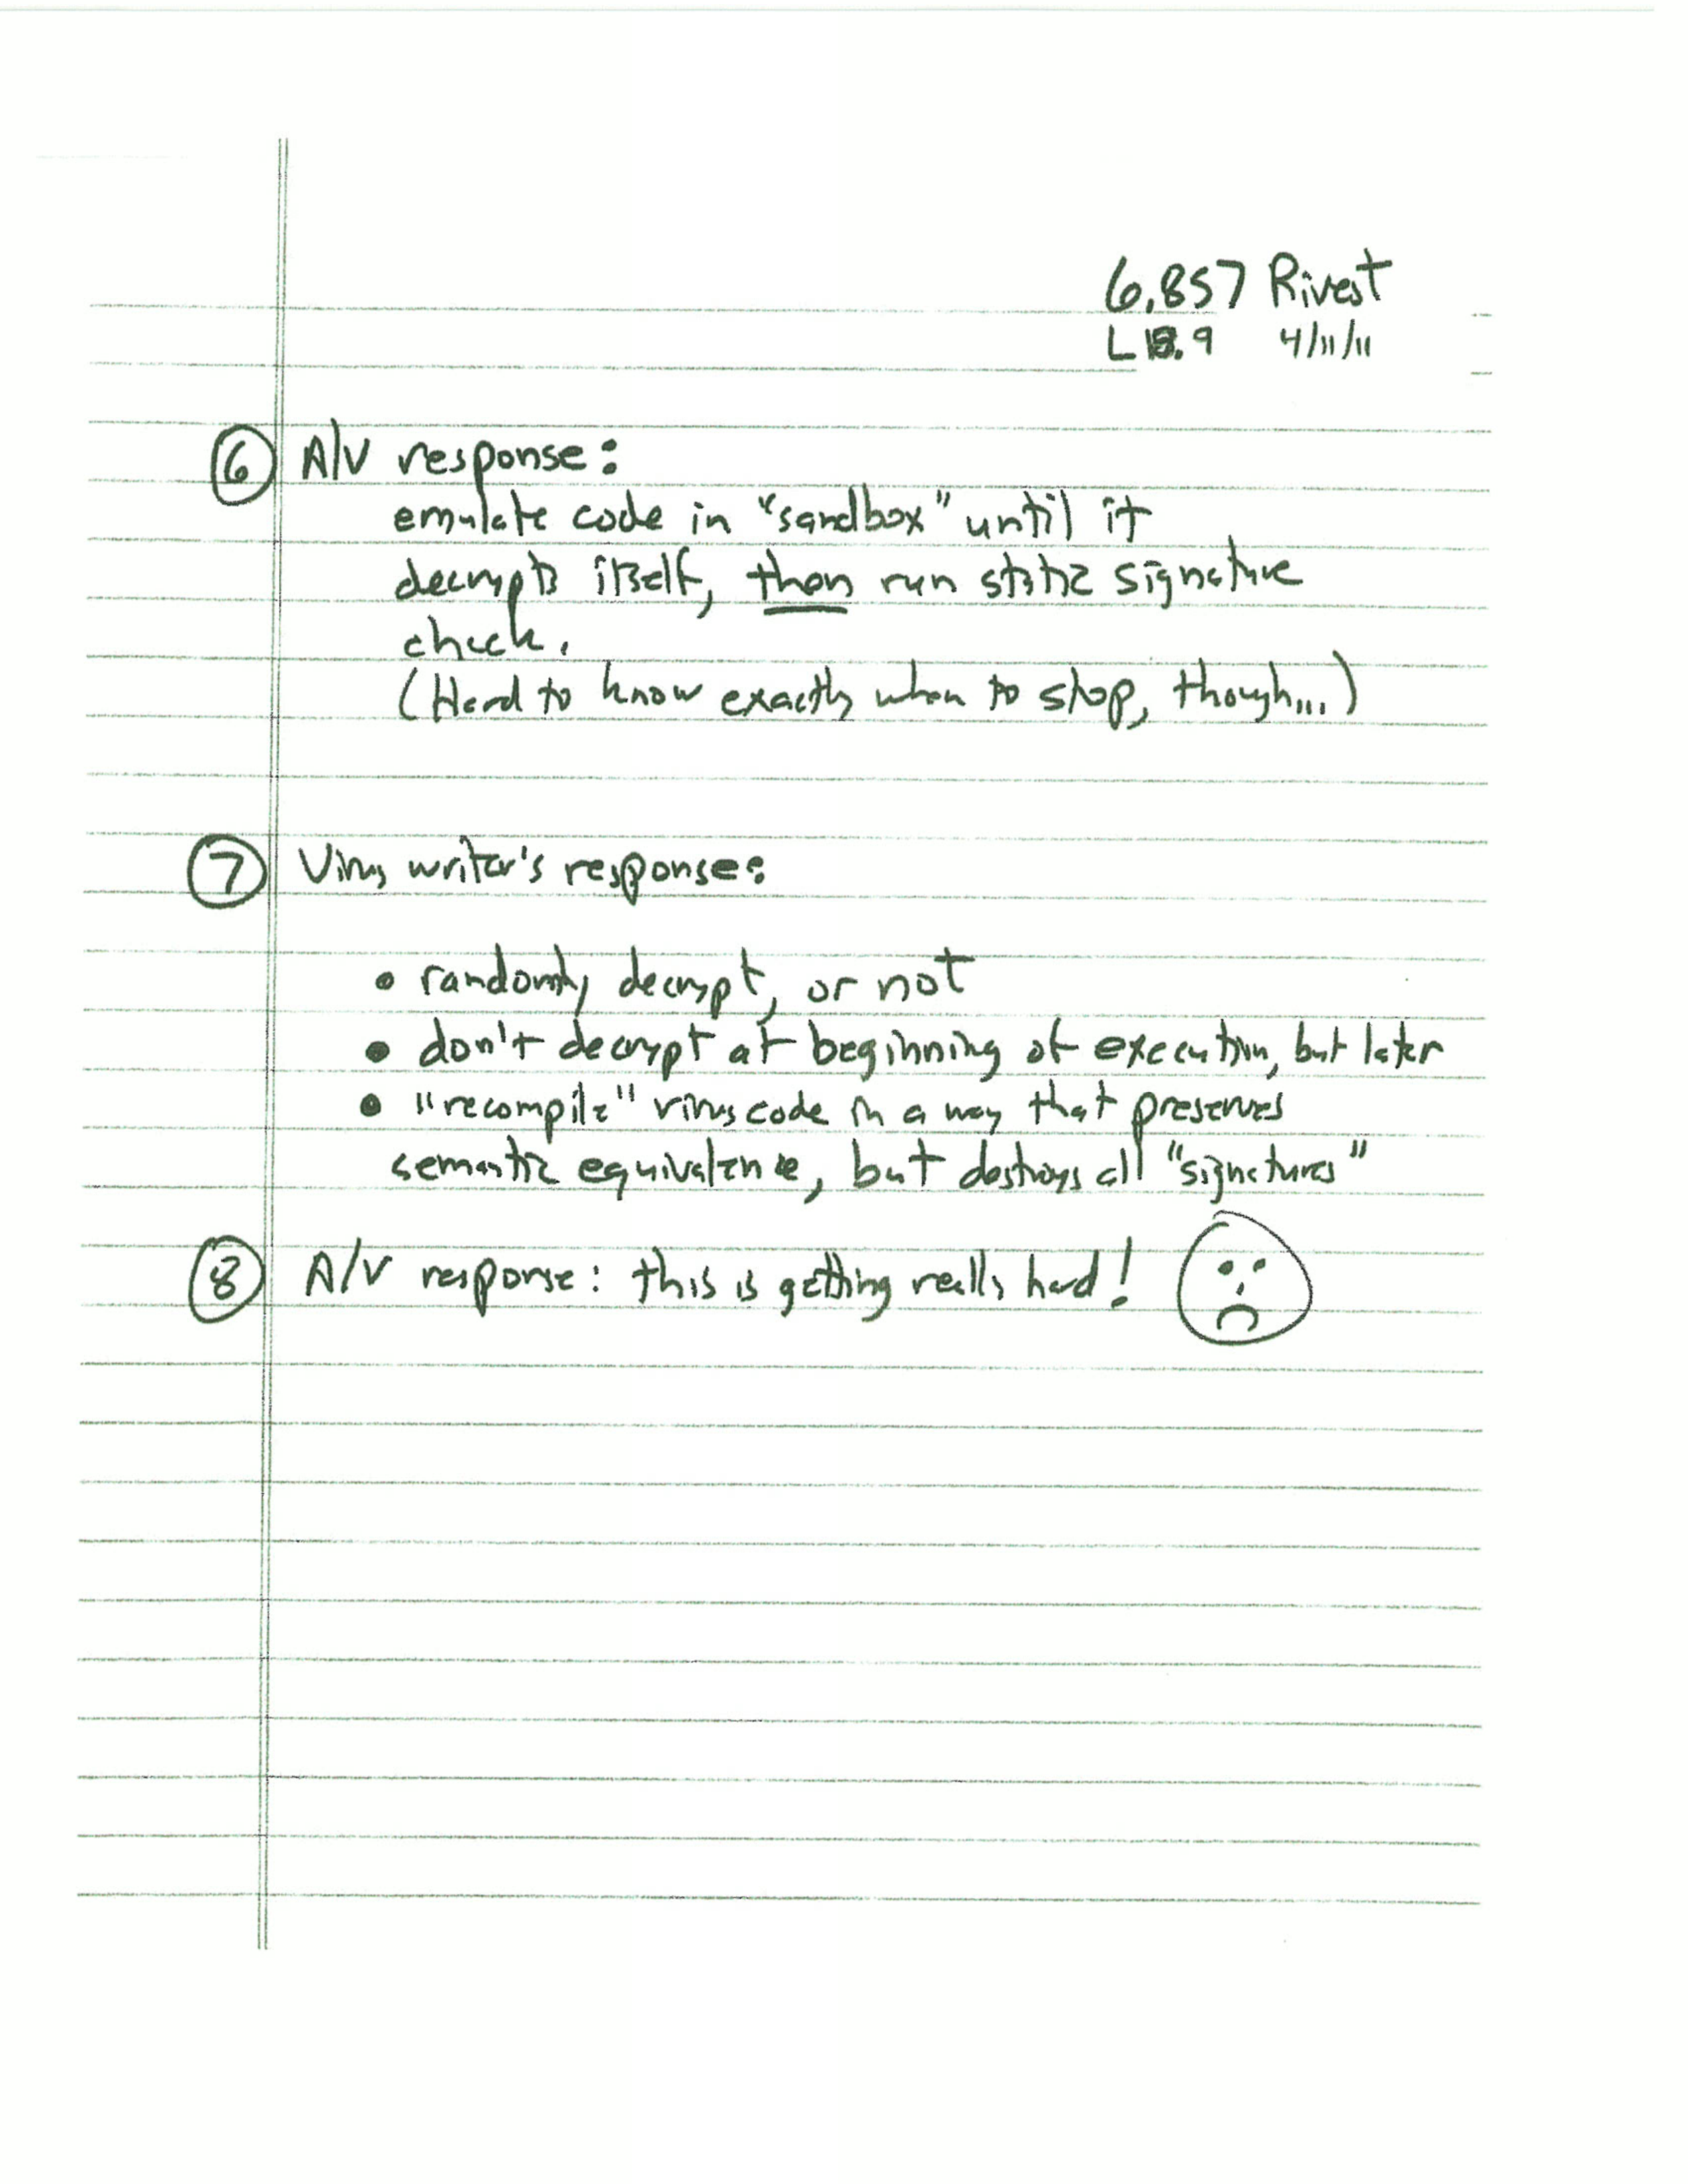 6.857 Rivest
L18.9 4/11/11
⑥ A/V response:
emulate code in "sandbox" until it
decrypts itself, then run static signature
check.
(Hard to know exactly when to stop, though...)
⑦ Virus writer's response:
• randomly decrypt, or not
• don't decrypt at beginning of execution, but later
• "recompile" virus code in a way that preserves
semantic equivalence, but destroys all "signatures"
⑧ A/V response: this is getting really hard!